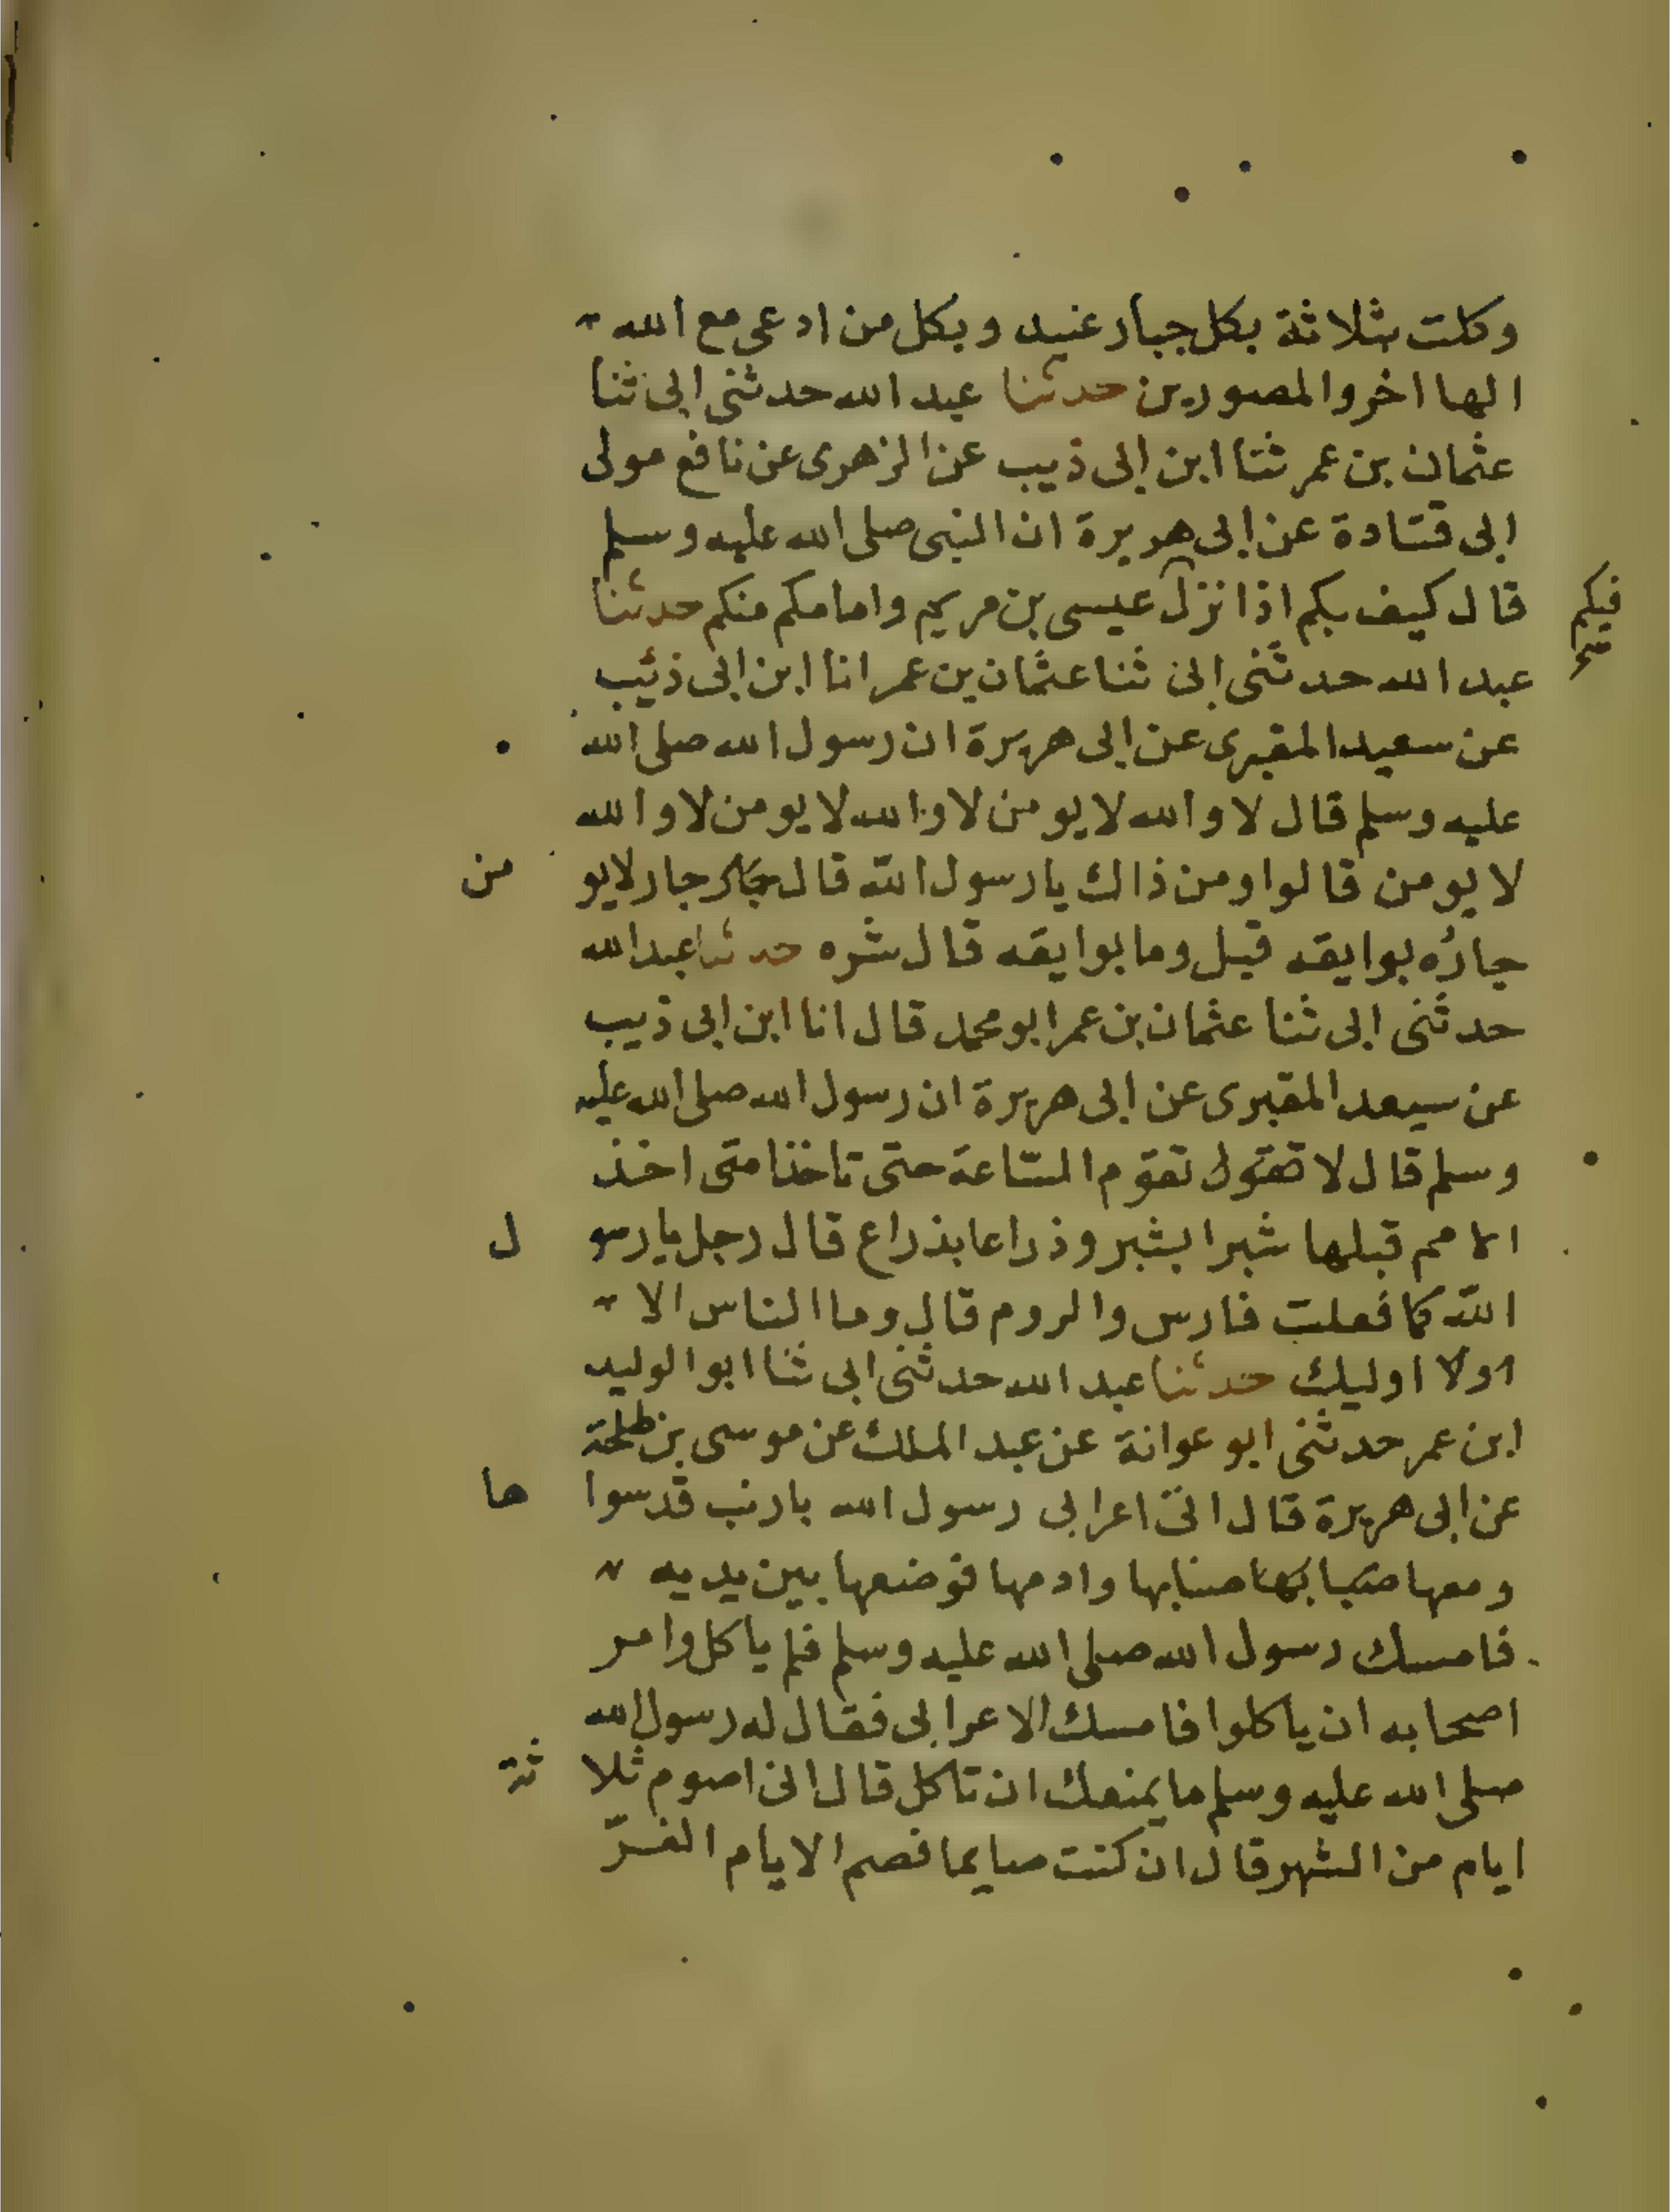 وكلت بثلاثة بكل جبار عنيد وبكل من ادعى مع الله
الها اخر والمصورين حدثنا عبد الله حدثنى ابى ثنا
عثمان بن عمر ثنا ابن ابى ذيب عن الزهرى عن نافع مولى
ابى قتادة عن ابى هريرة ان النبى صلى الله عليه وسلم
قال كيف بكم اذا نزل عيسى بن مريم وامامكم منكم حدثنا
فيكم صح
عبد الله حدثنى ابى ثنا عثمان بن عمر انا ابن ابى ذئيب
عن سعيد المقبرى عن ابى هريرة ان رسول الله صلى الله
عليه وسلم قال لا والله لا يومن لا والله لا يومن لا والله
لا يومن قالوا ومن ذاك يا رسول الله قال جار لا يومن
جاره بوايقه قيل وما بوايقه قال شره حدثنا عبد الله
حدثنى ابى ثنا عثمان بن عمر ابو محمد قال انا ابن ابى ذيب
عن سيعد المقبرى عن ابى هريرة ان رسول الله صلى الله عليه
وسلم قال لا تقول تقوم الساعة حتى تاخذ امتى اخذ
الامم قبلها شبرا بشبر وذراعا بذراع قال رجل يا رسول
الله كما فعلت فارس والروم قال وما الناس الا
اولا اوليك حدثنا عبد الله حدثنى ابى ثنا ابو الوليد
ابن عمر حدثنى ابو عوانة عن عبد الملك عن موسى بن طلحة
عن ابى هريرة قال اتى اعرابى رسول الله بارنب قد سواها
ومعها صنابها وادمها فوضعها بين يديه
فامسك رسول الله صلى الله عليه وسلم فلم ياكل وامر
اصحابه ان ياكلوا فامسك الاعرابى فقال له رسول الله
صلى الله عليه وسلم ما يمنعك ان تاكل قال انى اصوم ثلاثة
ايام من الشهر قال ان كنت صايما فصم الايام الغر